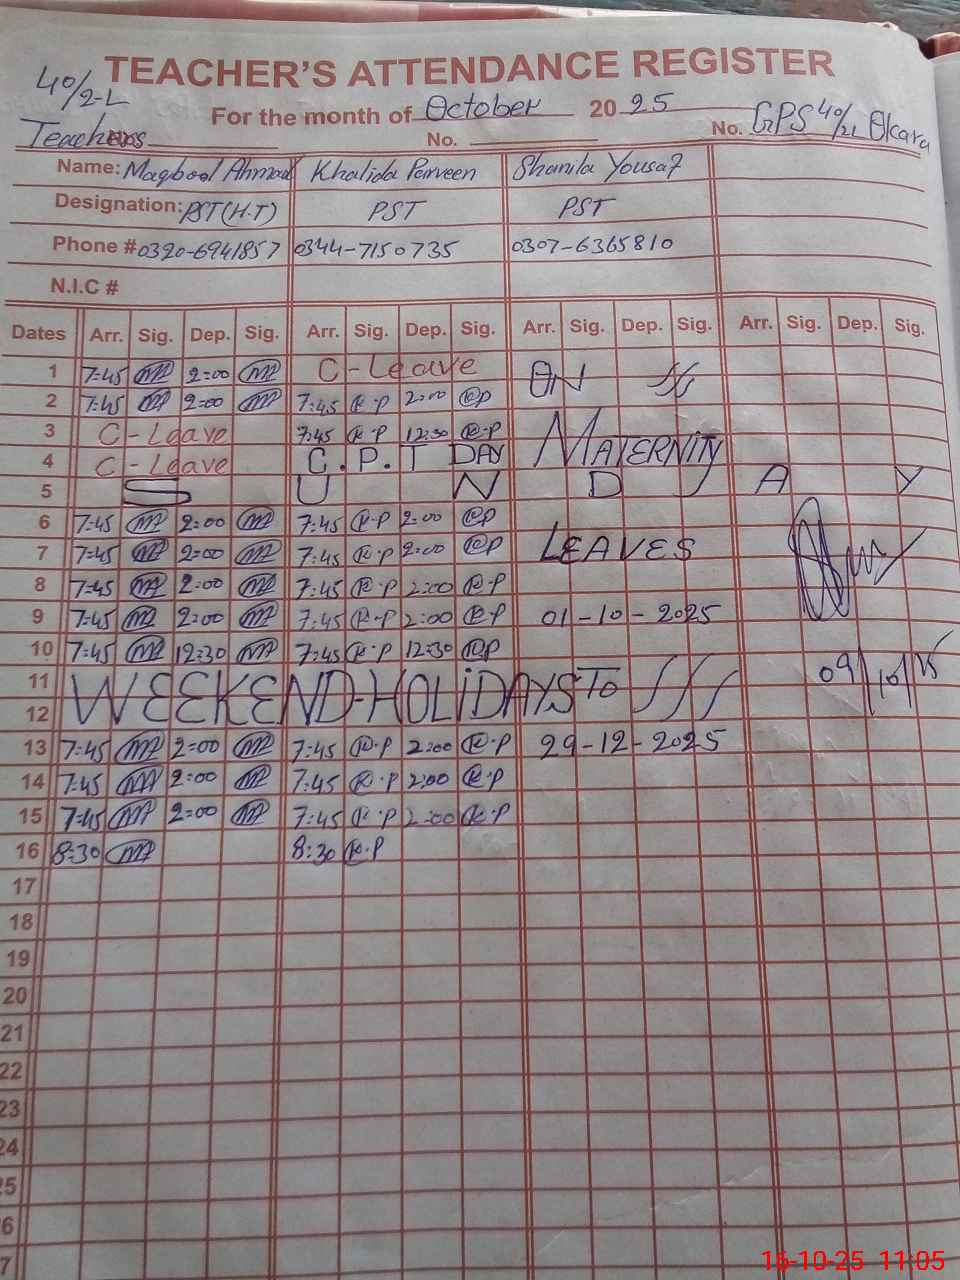 TEACHER'S ATTENDANCE REGISTER
40/2-L
For the month of October 2025
Teachers No. No. GPS 40/2L Okara
Name: Maqbool Ahmad Khalida Parveen Shamila Yousaf
Designation: PST(H.T) PST PST
Phone # 0320-6941857 0344-7150735 0307-6365810
N.I.C #
Dates Arr. Sig. Dep. Sig. Arr. Sig. Dep. Sig. Arr. Sig. Dep. Sig. Arr. Sig. Dep. Sig.
1 7:45 2:00 C-Leave ON
2 7:45 2:00 7:45 K.P 2:00 K.P
3 C-Leave 7:45 K.P 12:30 K.P MATERNITY
4 C-Leave C.P.T DAY
5 S U N D A Y
6 7:45 2:00 7:45 K.P 2:00 K.P
7 7:45 2:00 7:45 K.P 2:00 K.P LEAVES
8 7:45 2:00 7:45 K.P 2:00 K.P
9 7:45 2:00 7:45 K.P 2:00 K.P 01-10-2025
10 7:45 12:30 7:45 K.P 12:30 K.P
11 WEEKEND-HOLIDAYS TO 09/10/25
12
13 7:45 2:00 7:45 K.P 2:00 K.P 29-12-2025
14 7:45 2:00 7:45 K.P 2:00 K.P
15 7:45 2:00 7:45 K.P 2:00 K.P
16 8:30 8:30 K.P
17
18
19
20
21
22
23
24
5
6
7
16-10-25 11:05